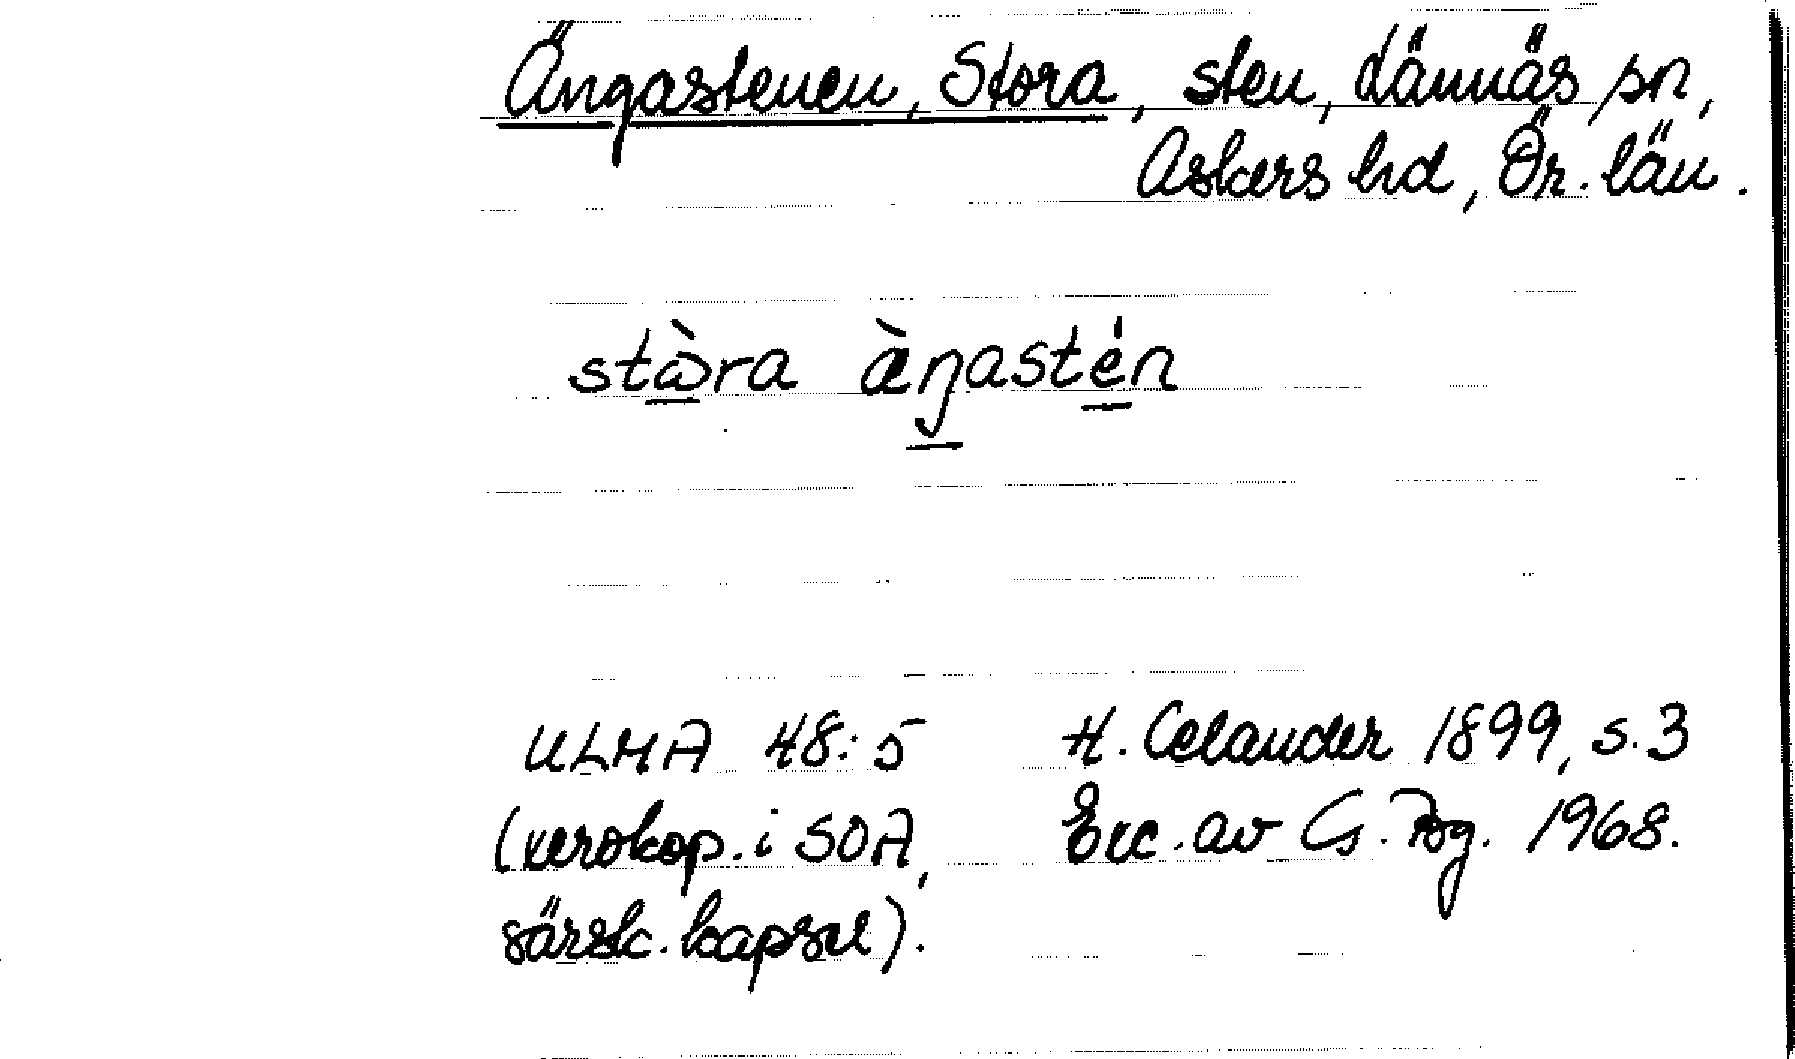 Ängastenen, Stora, sten, Lännäs sn,
Askers hd, Ör. län.
stὼra ὰŋastén
ULMA 48:5 H. Celander 1899, s. 3
(xerokop. i SOA, Exc. av G. Rbg. 1968.
särsk. kapsel).